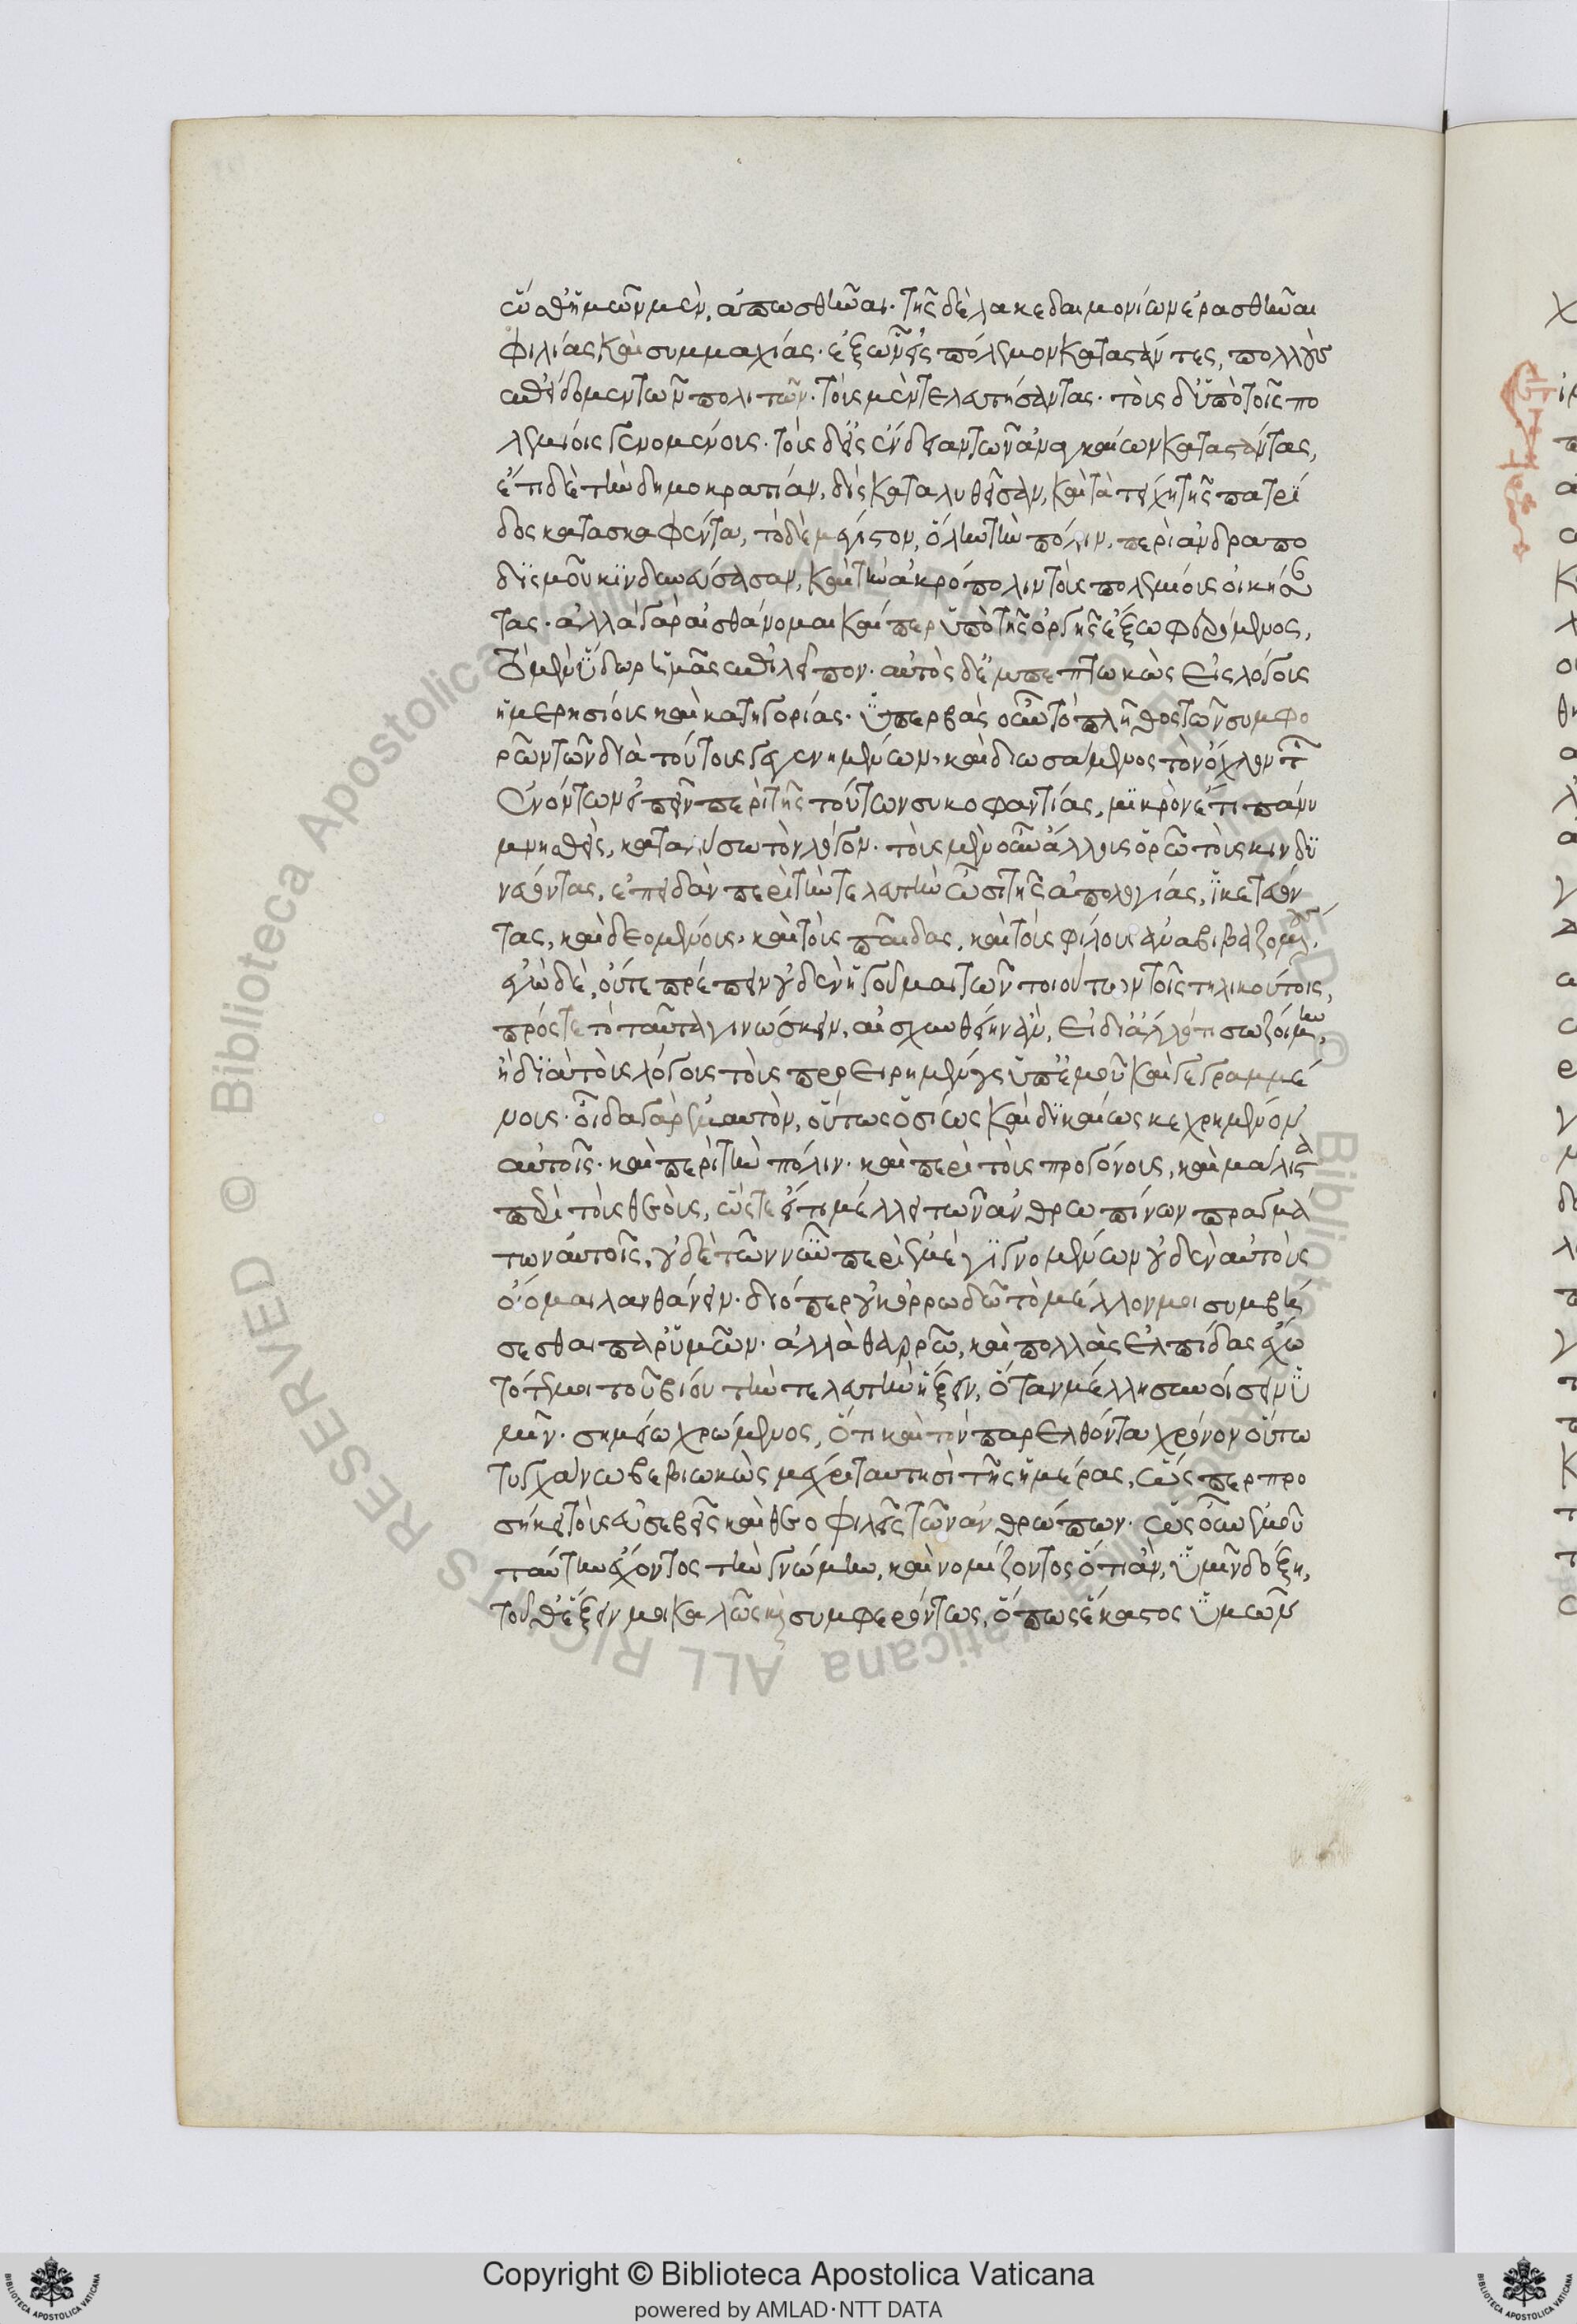 εὔν μεθ' ἡμῶν μὲν, ἀπωσθῆναι· τῆς δὲ λακεδαιμονίων ἐρασθῆναι
φιλίας καὶ συμμαχίας· ἐξ ὧν εἰς πόλεμον καταστάντες, πολλοὺς
ἐπείδομεν τῶν πολιτῶν· τοὺς μὲν τελευτήσαντας· τοὺς δ' ὑπὸ τοῖς πο
λεμίοις γενομένους· τοὺς δ' εἰς ἔνδειαν τῶν ἀναγκαίων καταστάντας,
ἔτι δὲ τὴν δημοκρατίαν, δὶς καταλυθεῖσαν, καὶ τὰ τείχη τῆς πατρί
δος κατασκαφέντα, τὸ δὲ μέγιστον, ὅλην τὴν πόλιν, περὶ ἀνδραπο
δισμοῦ κινδυνεύσασαν, καὶ τὴν ἀκρόπολιν τοὺς πολεμίους οἰκήσαν
τας· ἀλλὰ γὰρ αἰσθάνομαι καίπερ ὑπὸ τῆς ὀργῆς ἔξω φερόμενος,
τὸ μὲν ὕδωρ ἡμᾶς ἐπιλεῖπον· αὐτὸς δ' ἐμπεπτωκὼς εἰς λόγους
ἡμερησίους καὶ κατηγορίας· ὑπερβὰς οὖν τὸ πλῆθος τῶν συμφο
ρῶν τῶν διὰ τούτους γεγενημένων, καὶ διωσάμενος τὸν ὄχλον τῶν
ἐνόντων εἰπεῖν περὶ τῆς τούτων συκοφαντίας, μικρὸν ἔτι πάνυ
μνησθεὶς, καταλύσω τὸν λόγον· τοὺς μὲν οὖν ἄλλους ὁρῶ τοὺς κινδυ
νεύοντας, ἐπειδὰν περὶ τὴν τελευτὴν ὦσι τῆς ἀπολογίας, ἱκετεύον
τας, καὶ δεομένους, καὶ τοὺς παῖδας, καὶ τοὺς φίλους ἀναβιβαζομένους·
ἐγὼ δὲ, οὔτε πρέπειν οὐδὲν ἡγοῦμαι τῶν τοιούτων τοῖς τηλικούτοις,
πρός τε τὸ ταῦτα γινώσκειν, αἰσχυνθείην ἂν, εἰ δι' ἄλλό τι σωζοίμην,
ἢ διὰ τοὺς λόγους τοὺς προειρημένους ὑπ' ἐμοῦ καὶ γεγραμμέ
νους· οἶδα γὰρ ἐμαυτὸν, οὕτως ὁσίως καὶ δικαίως κεχρημένον
αὐτοῖς· καὶ περὶ τὴν πόλιν· καὶ περὶ τοὺς προγόνους, καὶ μάλιστα
περὶ τοὺς θεοὺς, ὥστε εἴ τι μέλλει τῶν ἀνθρωπίνων πραγμά
των αὐτοῖς, οὐδὲ τῶν νῦν περὶ ἐμὲ γιγνομένων οὐδὲν αὐτοὺς
οἴομαι λανθάνειν· διόπερ οὐκ ὀρρωδῶ τὸ μέλλον μοι συμβή
σεσθαι παρ' ὑμῶν· ἀλλὰ θαρρῶ, καὶ πολλὰς ἐλπίδας ἔχω
τότε μοι τοῦ βίου τὴν τελευτὴν ἥξειν, ὅταν μέλλῃ συνοίσειν ὑ
μῖν· σημείῳ χρώμενος, ὅτι καὶ τὸν παρελθόντα χρόνον οὕτω
τυγχάνω βεβιωκὼς μέχρι ταυτησὶ τῆς ἡμέρας, ὥσπερ προ
σήκει τοὺς εὐσεβεῖς καὶ θεοφιλεῖς τῶν ἀνθρώπων· ὡς οὖν ἐμοῦ
ταύτην ἔχοντος τὴν γνώμην, καὶ νομίζοντος ὅτι ἂν, ὑμῖν δόξῃ,
τοῦθ' ἕξειν μοι καλῶς καὶ συμφερόντως, ὅπως ἕκαστος ὑμῶν